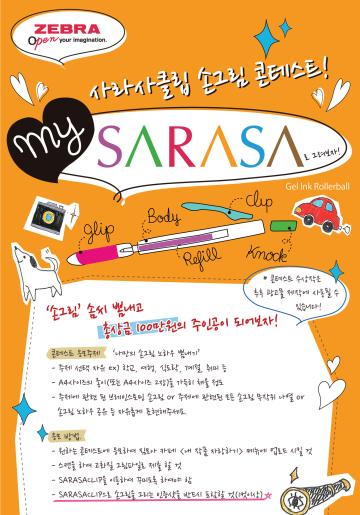 ZEBRA
Open your imagination.
사라사클립 손그림 콘테스트!
my SARASA로 그려보자!
Gel Ink Rollerball
Grip
Body
Clip
Refill
Knock
* 콘테스트 수상작은
추후 광고물 제작에 사용될 수
있습니다!
'손그림' 솜씨 뽐내고
총상금 100만원의 주인공이 되어보자!
콘테스트 응모주제 '나만의 손그림 노하우 뽐내기'
- 주제 선택 자유 ex) 학교, 여행, 직도락, 계절, 취미 등
- A4사이즈의 종이(또는 A4사이즈 2장)을 가득히 채울 정도
- 주제에 관련된 브레인스토밍 손그림 or 주제에 관련된 모든 손그림 무작위 나열 or
손그림 노하우 공유 등 자유롭게 표현해주세요.
응모 방법
- 원하는 콘테스트에 응모하여 필통과 카페 <내 작품 자랑하기> 메뉴에 업로드 시킬 것
- 스캔을 하여 고화질 그림파일로 제출 할 것
- SARASACLIP을 이용하여 꾸미도록 하여야 함
- SARASACLIP으로 손그림을 그리는 인증샷을 반드시 포함할 것(1컷이상)